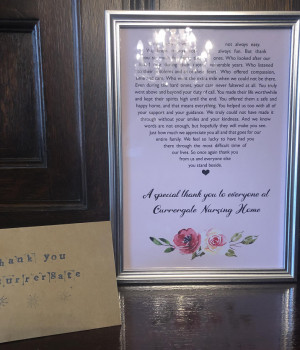 you always easy
always fun. But thank
Who looked after our
years. Who listened
Who offered compassion.
when we could not be there.
Even during times, your care never faltered at all. You truly
went above and beyond your duty call. You made their life worthwhile
and kept their spirits high until the end. You offered them a safe and
happy home, and that means everything. You helped us too with all of
your support and your guidance. We truly could not have made it
through without your smiles and your kindness. And we know
words are not enough, but hopefully they will make you see.
Just how much we appreciate you all and that goes for our
entire family. We feel so lucky to have had you
there through the most difficult time of
our lives. So once again thank you
from us and everyone else
you stand beside.
A special thank you to everyone at
Currergate Nursing Home
Thank you
Currergate